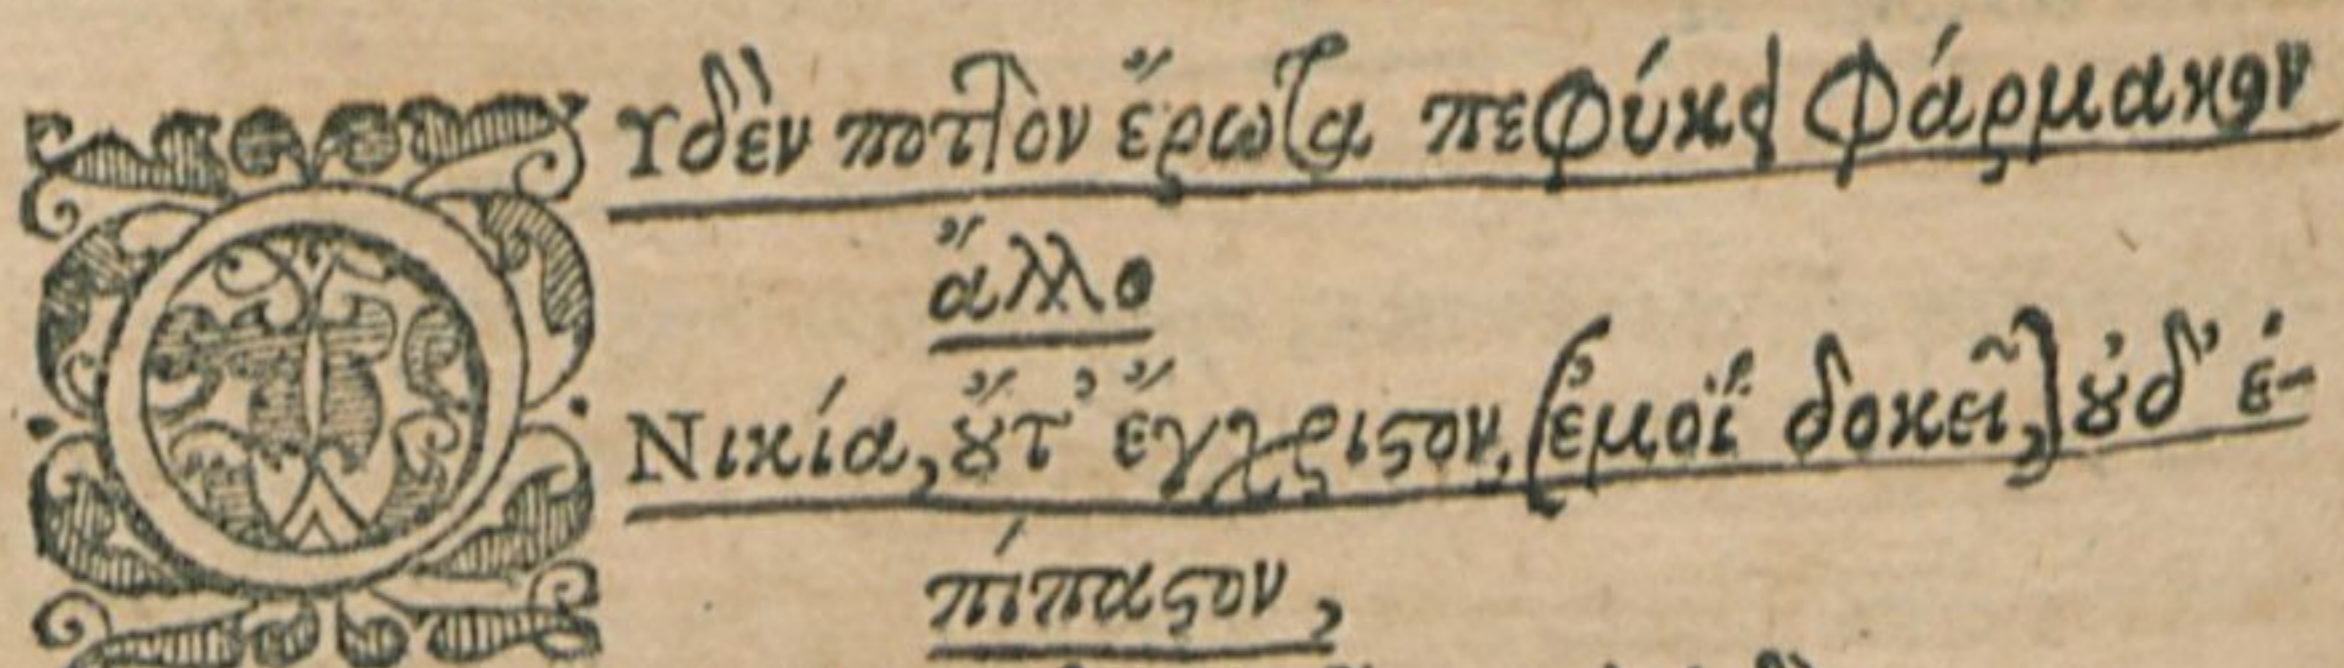 Ουδὲν ποτὶ τὸν ἔρωτα πεφύκει φάρμακον
ἄλλο
Νικία, οὔτ' ἔγχριστον, (ἐμοὶ δοκεῖ,) οὐδ' ἐ-
πίπαστον,